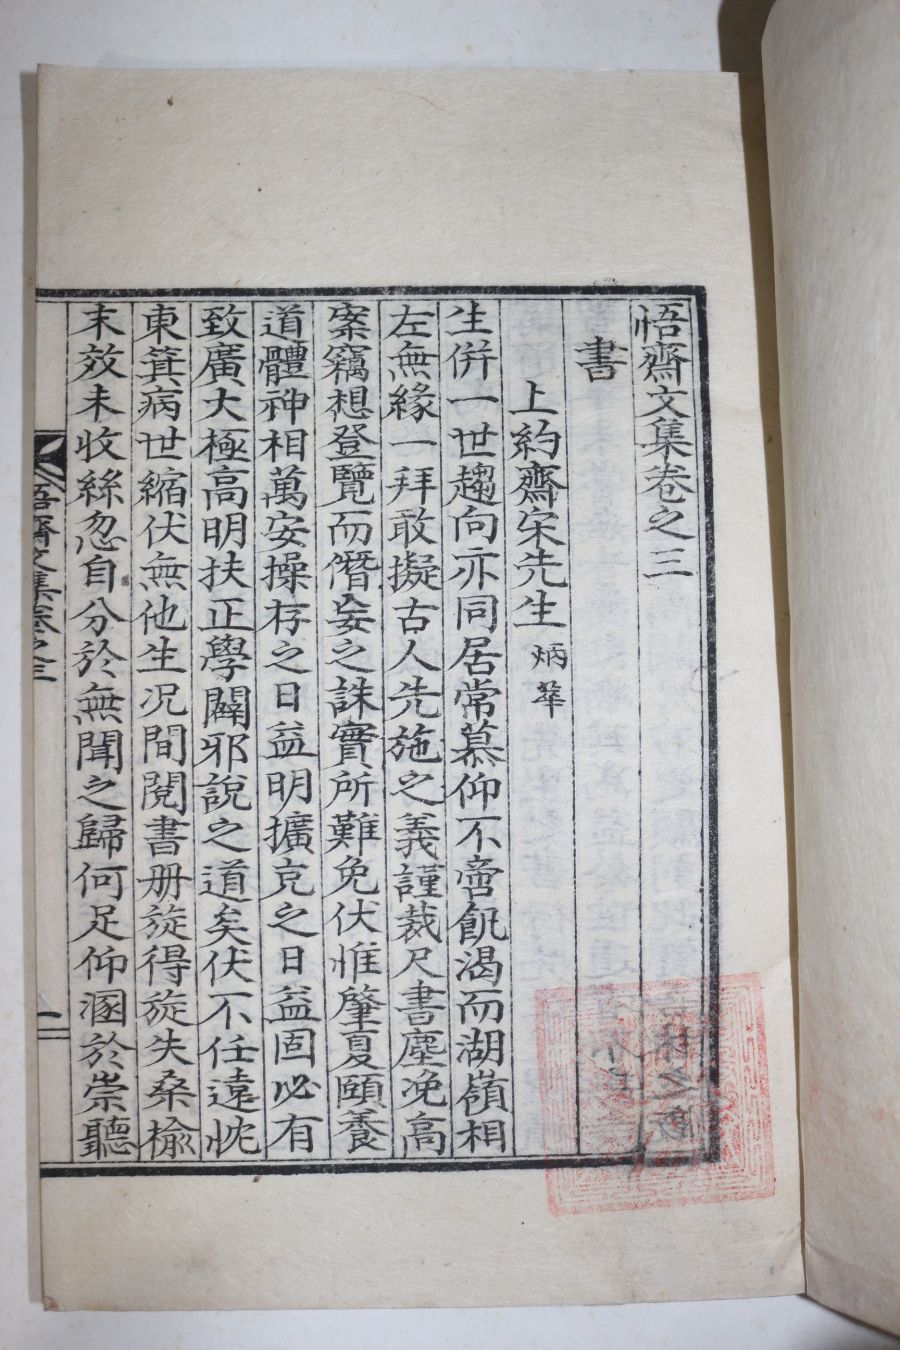 悟齋文集卷之三
書
上約齋宋先生 炳華
生併一世趨向亦同居常慕仰不啻飢渴而湖嶺相
左無緣一拜敢擬古人先施之義謹裁尺書塵浼高
案竊想登覽而僭妄之誅實所難免伏惟肇夏頤養
道體神相萬安操存之日益明擴克之日益固必有
致廣大極高明扶正學闢邪說之道矣伏不任遠忱
東箕病世縮伏無他生况間閱書册旋得旋失桑楡
末效未收絲忽自分於無聞之歸何足仰溷於崇聽
悟齋文集卷之三
一